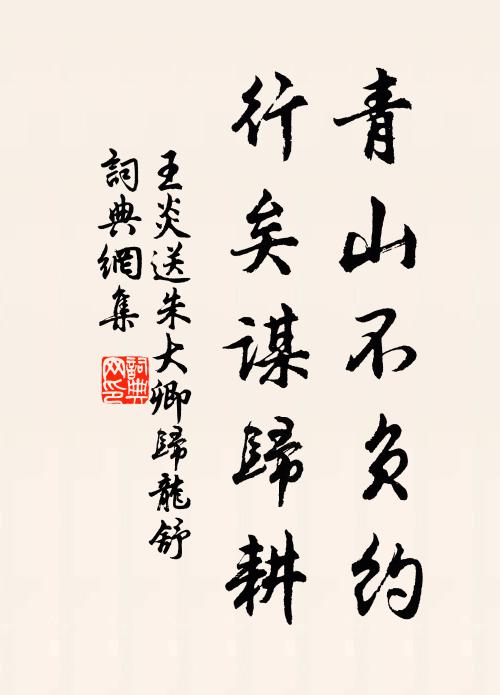 青山不負約
行矣謀歸耕
王炎送朱大卿歸龍舒
詞典網集
詞典网印